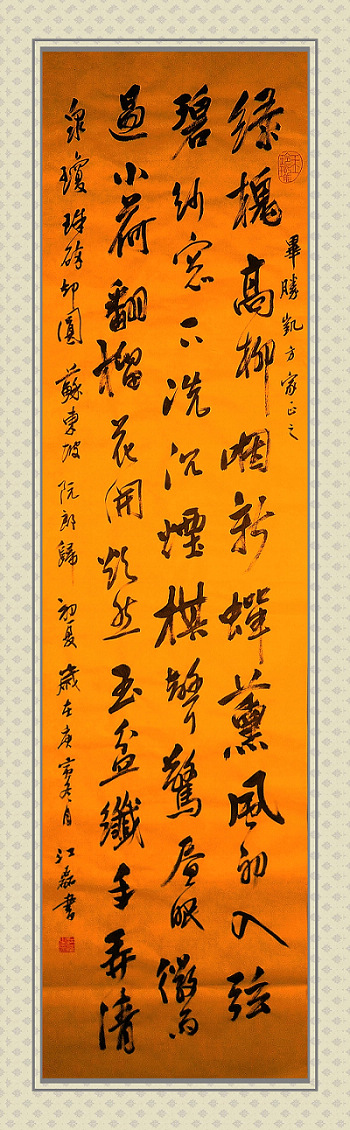 畢勝凱方家正之
綠槐高柳咽新蟬薰風初入弦
碧紗窓下洗沉煙棋聲驚晝眠微雨
過小荷翻榴花開欲然玉盆纖手弄清
泉瓊珠碎卻圓 蘇東坡 阮郎歸 初夏 歲在庚寅冬月 江磊書